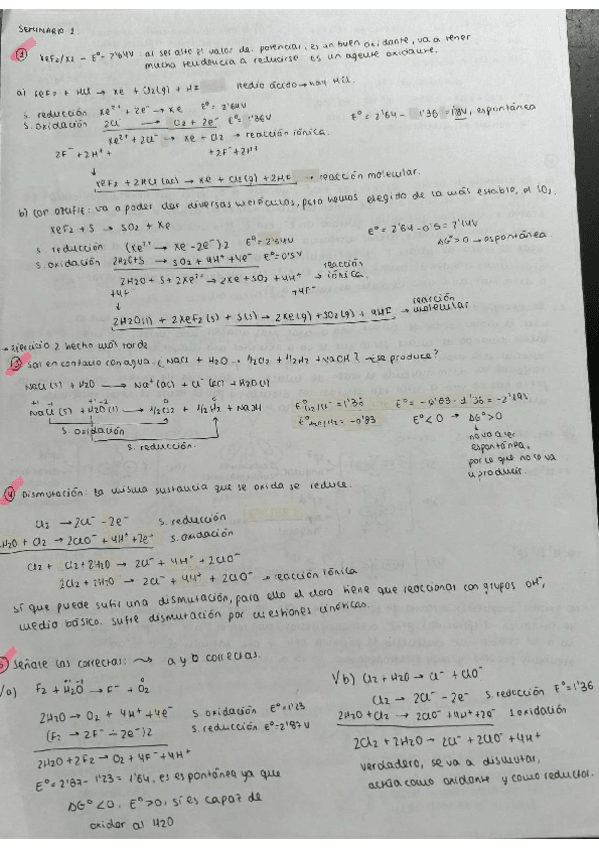 SEMINARIO 1
① XeF2/Xe - E° = 2'64V al ser alto el valor de potencial, es un buen oxidante, va a tener
mucha tendencia a reducirse es un agente oxidante.
a) XeF2 + HCl → Xe + Cl2(g) + HF medio ácido → hay HCl.
s. reducción Xe²⁺ + 2e⁻ → Xe E° = 2'64V
s. oxidación 2Cl⁻ → Cl2 + 2e⁻ E° = 1'36V
E° = 2'64 - 1'36 = 1'8V, espontánea
Xe²⁺ + 2Cl⁻ → Xe + Cl2 → reacción iónica.
2F⁻ + 2H⁺ + 2F⁻ + 2H⁺
↓
XeF2 + 2HCl(ac) → Xe + Cl2(g) + 2HF → reacción molecular.
b) con azufre: va a poder dar diversas moléculas, pero hemos elegido la más estable, el SO2.
XeF2 + S → SO2 + Xe
s. reducción (Xe²⁺ → Xe - 2e⁻) 2 E° = 2'64V
E° = 2'64 - 0'5 = 2'14V
s. oxidación 2H2O + S → SO2 + 4H⁺ + 4e⁻ E° = 0'5V
ΔG° > 0 → espontánea.
2H2O + S + 2Xe²⁺ → 2Xe + SO2 + 4H⁺ → reacción iónica.
+4F⁻ +4F⁻
↓
2H2O(l) + 2XeF2(s) + S(s) → 2Xe(g) + SO2(g) + 4HF → reacción molecular
→ ejercicio 2 hecho más tarde
③ Sal en contacto con agua. ¿NaCl + H2O → 1/2Cl2 + 1/2H2 + NaOH? ¿se produce?
NaCl(s) + H2O → Na⁺(ac) + Cl⁻(ac) + H2O(l)
NaCl(s) + H2O(l) → 1/2Cl2 + 1/2H2 + NaOH
E°Cl2/Cl⁻ = 1'36 E° = -0'83 - 1'36 = -2'19V
E°H2O/H2 = -0'83 E° < 0 → ΔG° > 0
s. oxidación
s. reducción.
↓
no va a ser
espontánea,
por lo que no se va
a producir.
④ Dismutación: La misma sustancia que se oxida se reduce.
Cl2 → 2Cl⁻ - 2e⁻ s. reducción
2H2O + Cl2 → 2ClO⁻ + 4H⁺ + 2e⁻ s. oxidación
Cl2 + Cl2 + 2H2O → 2Cl⁻ + 4H⁺ + 2ClO⁻
2Cl2 + 2H2O → 2Cl⁻ + 4H⁺ + 2ClO⁻ → reacción iónica
sí que puede sufrir una dismutación, para ello el cloro tiene que reaccionar con grupos OH⁻,
medio básico. sufre dismutación por cuestiones cinéticas.
Señale las correctas: → a y b correctas.
V a) F2 + H2O → F⁻ + O2
2H2O → O2 + 4H⁺ + 4e⁻ s. oxidación E° = 1'23
(F2 → 2F⁻ - 2e⁻) 2 s. reducción E° = 2'87V
2H2O + 2F2 → O2 + 4F⁻ + 4H⁺
E° = 2'87 - 1'23 = 1'64, es espontánea ya que
ΔG° < 0, E° > 0, sí es capaz de
oxidar al H2O
V b) Cl2 + H2O → Cl⁻ + ClO⁻
Cl2 → 2Cl⁻ - 2e⁻ s. reducción E° = 1'36
2H2O + Cl2 → 2ClO⁻ + 4H⁺ + 2e⁻ s. oxidación
2Cl2 + 2H2O → 2Cl⁻ + 2ClO⁻ + 4H⁺
verdadero, se va a dismutar,
actúa como oxidante y como reductor.